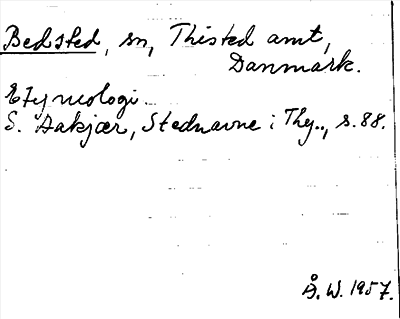 Bedsted, sn, Thisted amt,
Danmark.
Etymologi.
S. Aakjær, Stednavne i Thy.., s. 88.
Å. W. 1957.